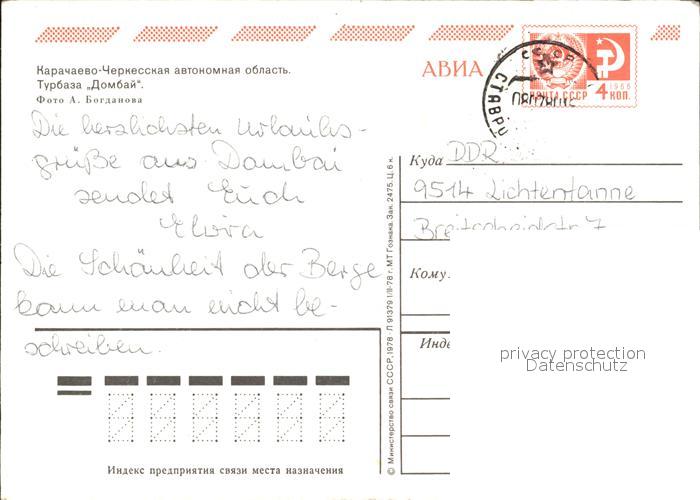 Карачаево-Черкесская автономная область.
Турбаза „Домбай“.
Фото А. Богданова
АВИА
СССР
СТАВРО
1966
ПОЧТА СССР 4 КОП.
Die herzlichsten Urlaubs-
grüße aus Dombai
sendet Euch
Elvira
Die Schönheit der Berge
kann man nicht be-
schreiben.
Куда DDR
9514 Lichtentanne
Breitscheidstr 7
Кому
Инде
privacy protection
Datenschutz
© Министерство связи СССР, 1978 · Л 91379 I/II-78 г. МТ Гознака. Зак. 2475. Ц. 6 к.
Индекс предприятия связи места назначения